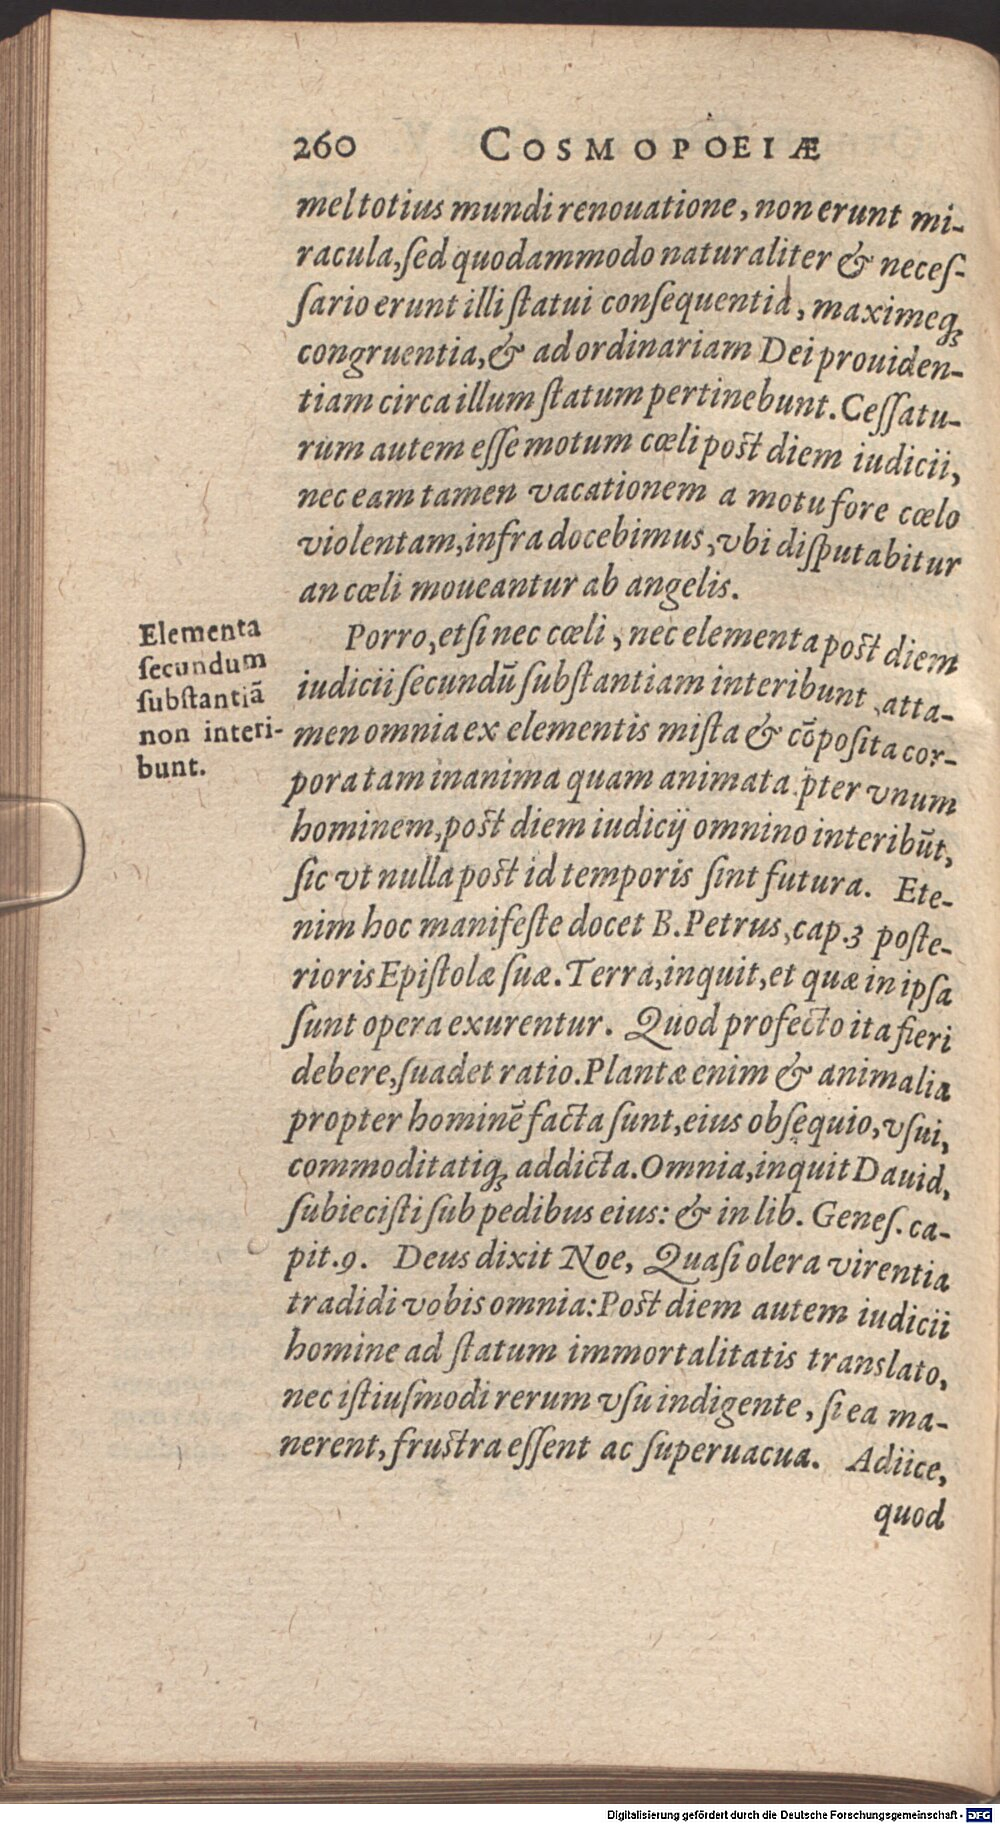 260 COSMOPOEIÆ
mel totius mundi renouatione, non erunt mi-
racula, ſed quodammodo naturaliter & neceſ-
ſario erunt illi ſtatui conſequentia, maximeq;
congruentia, & ad ordinariam Dei prouiden-
tiam circa illum ſtatum pertinebunt. Ceſſatu-
rum autem eſſe motum cœli poſt diem iudicii,
nec eam tamen vacationem a motu fore cœlo
violentam, infra docebimus, vbi diſputabitur
an cœli moueantur ab angelis.
Elementa
ſecundum
ſubſtantiā
non interi-
bunt.
Porro, etſi nec cœli, nec elementa poſt diem
iudicii ſecundū ſubſtantiam interibunt, atta-
men omnia ex elementis miſta & cōpoſita cor-
pora tam inanima quam animata ꝓpter vnum
hominem, poſt diem iudicij omnino interibūt,
ſic vt nulla poſt id temporis ſint futura. Ete-
nim hoc manifeſte docet B. Petrus, cap. 3 poſte-
rioris Epiſtolæ ſuæ. Terra, inquit, et quæ in ipſa
ſunt opera exurentur. Quod profecto ita fieri
debere, ſuadet ratio. Plantæ enim & animalia
propter hominē facta ſunt, eius obſequio, vſui,
commoditatiq; addicta. Omnia, inquit Dauid,
ſubieciſti ſub pedibus eius: & in lib. Geneſ. ca-
pit. 9. Deus dixit Noe, Quaſi olera virentia
tradidi vobis omnia: Poſt diem autem iudicii
homine ad ſtatum immortalitatis translato,
nec iſtiuſmodi rerum vſu indigente, ſi ea ma-
nerent, fruſtra eſſent ac ſuperuacua. Adiice,
quod
Digitalisierung gefördert durch die Deutsche Forschungsgemeinschaft - DFG